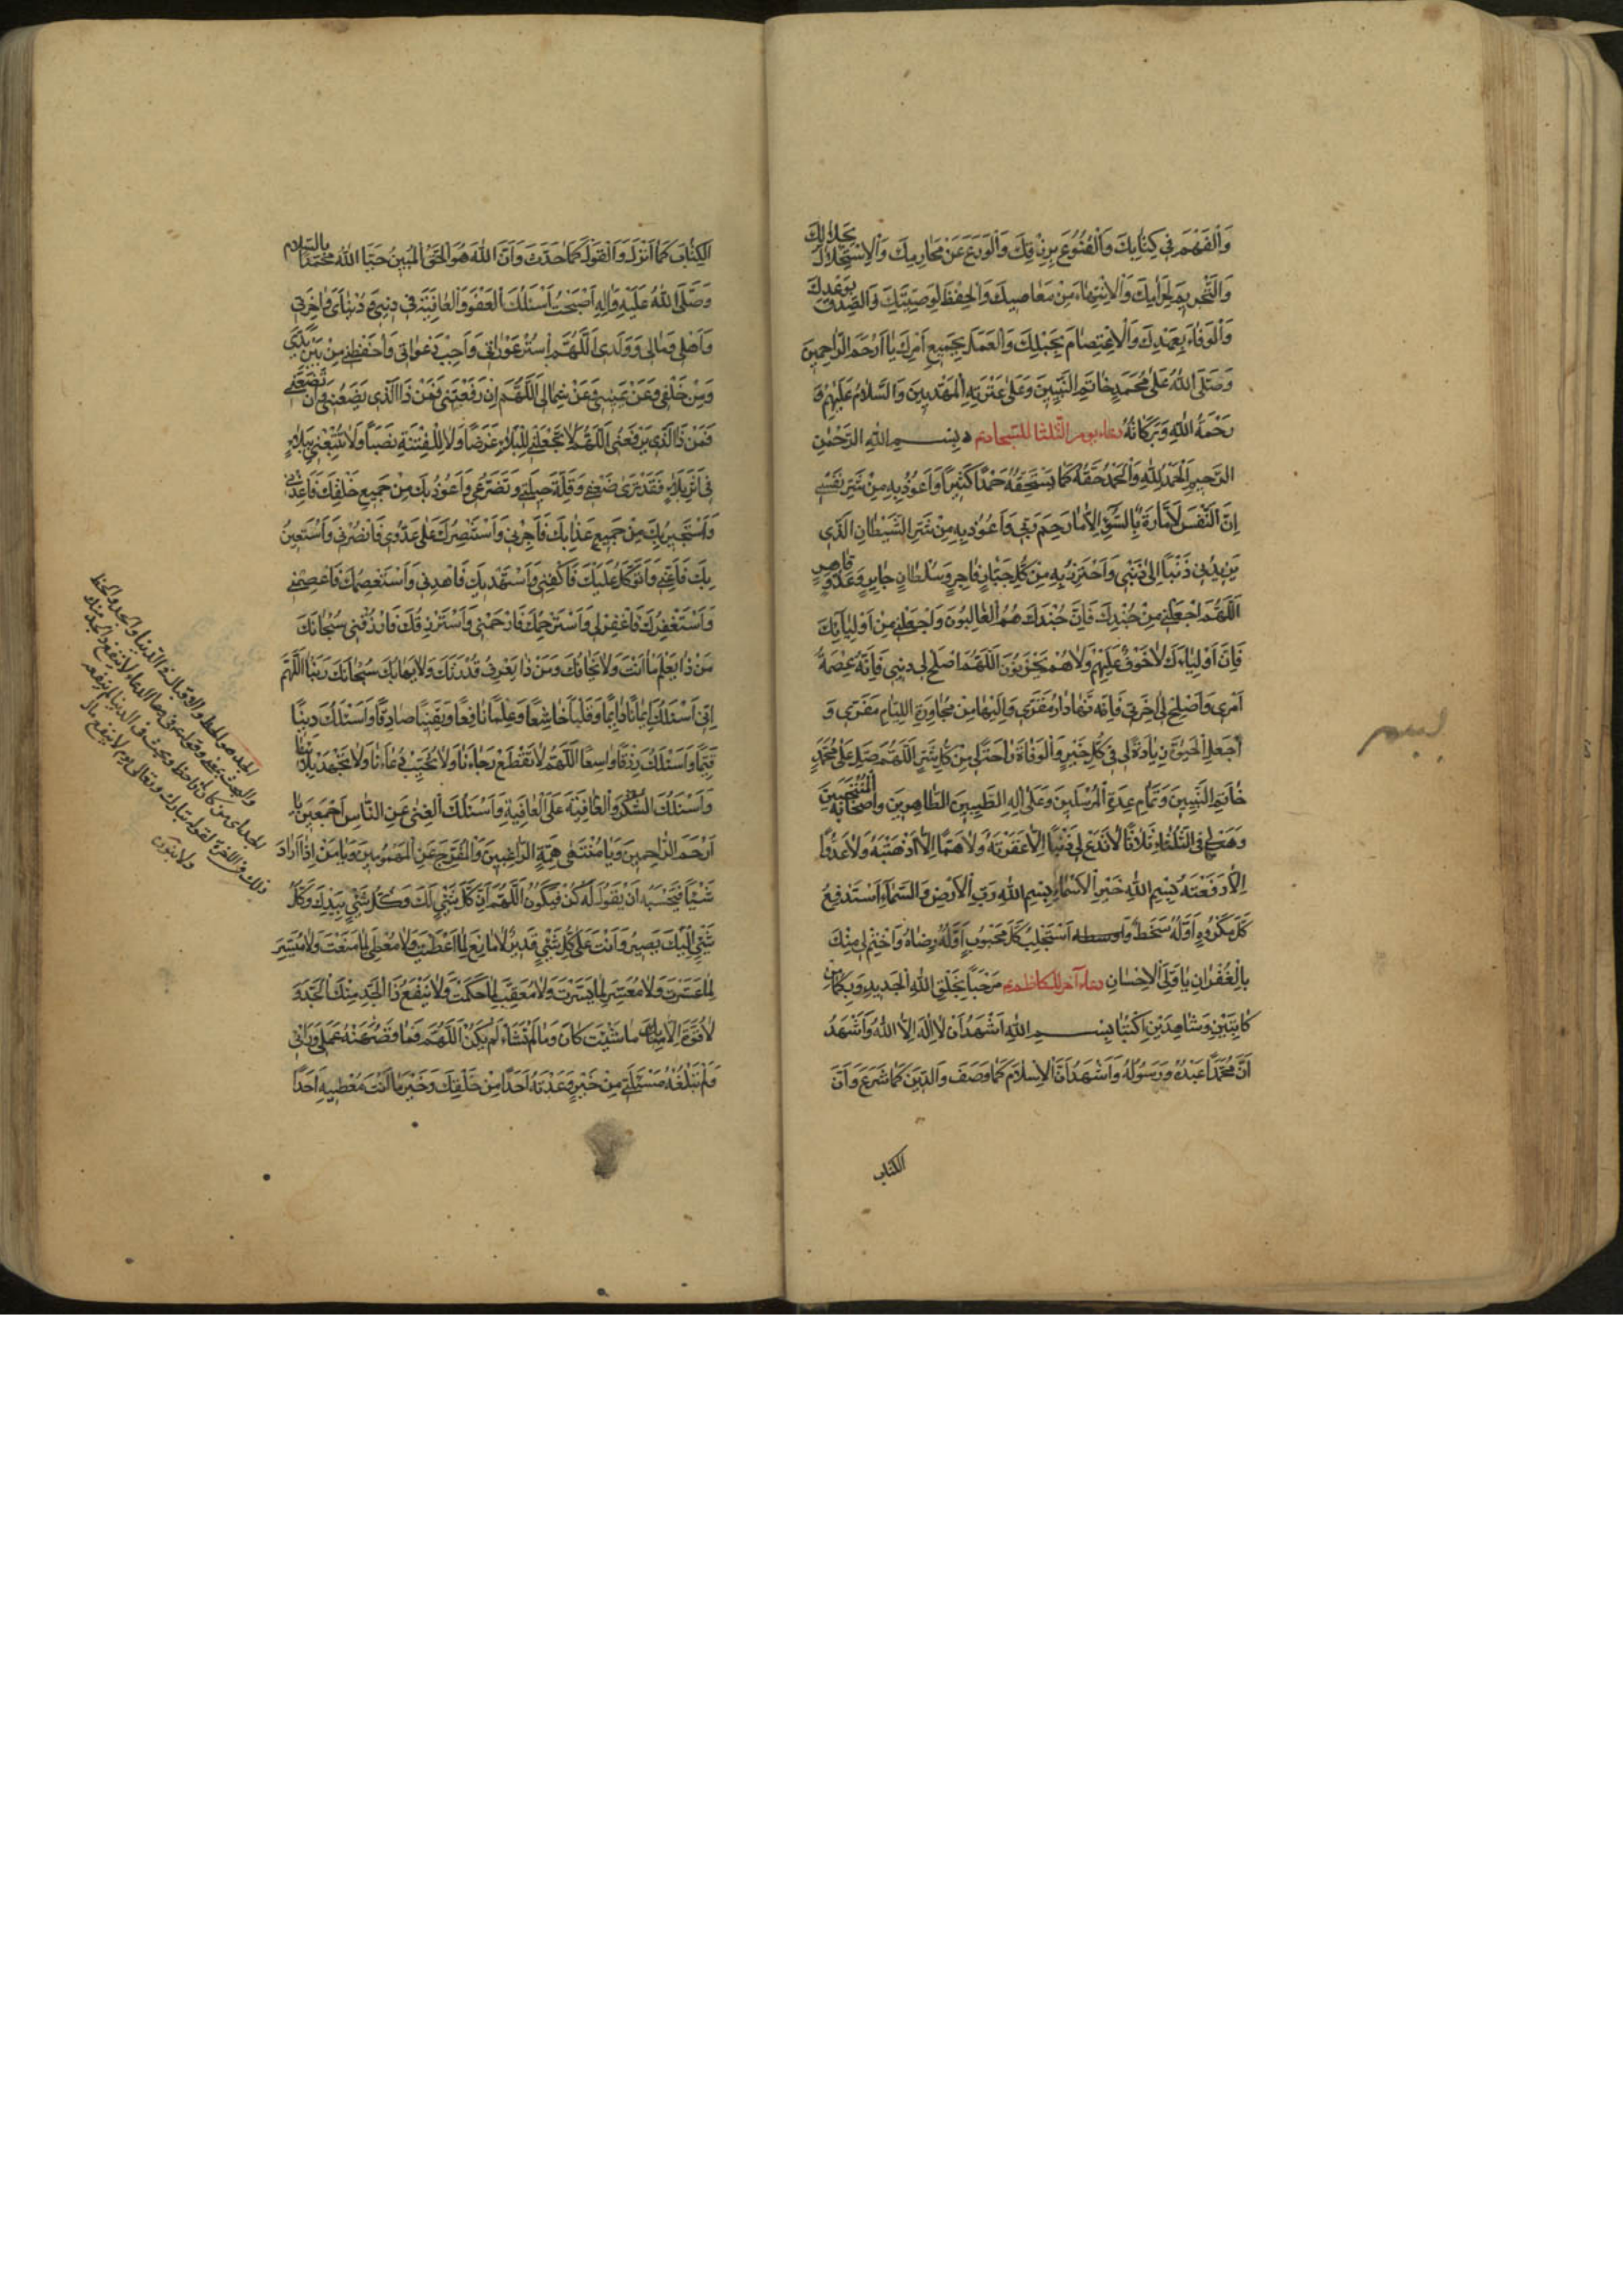 وَالْفَهْمَ فِي كِتَابِكَ وَالْقُنُوعَ بِرِزْقِكَ وَالْوَرَعَ عَنْ مَحَارِمِكَ وَالْاِسْتِحْلَالَ بِحَلَالِكَ
وَالتَّحْرِيمَ لِحَرَامِكَ وَالْاِنْتِهَاءَ مِنْ مَعَاصِيكَ وَالْحِفْظَ لِوَصِيَّتِكَ وَالصِّدْقَ بِوَعْدِكَ
وَالْوَفَاءَ بِعَهْدِكَ وَالْاِعْتِصَامَ بِحَبْلِكَ وَالْعَمَلَ بِجَمِيعِ اَمْرِكَ يَا اَرْحَمَ الرَّاحِمِينَ
وَصَلَّى اللّٰهُ عَلٰى مُحَمَّدٍ خَاتَمِ النَّبِيِّينَ وَعَلٰى عِتْرَتِهِ الْمَهْدِيِّينَ وَالسَّلَامُ عَلَيْهِمْ وَ
رَحْمَةُ اللّٰهِ وَبَرَكَاتُهُ دعاء يوم الثلثا للسجاد بِسْمِ اللّٰهِ الرَّحْمٰنِ
الرَّحِيمِ اَلْحَمْدُ لِلّٰهِ وَالْحَمْدُ حَقُّهُ كَمَا يَسْتَحِقُّهُ حَمْدًا كَثِيرًا وَاَعُوذُ بِهِ مِنْ شَرِّ نَفْسِي
اِنَّ النَّفْسَ لَاَمَّارَةٌ بِالسُّوءِ اِلَّا مَا رَحِمَ رَبِّي وَاَعُوذُ بِهِ مِنْ شَرِّ الشَّيْطَانِ الَّذِي
يَزِيدُنِي ذَنْبًا اِلٰى ذَنْبِي وَاَحْتَرِزُ بِهِ مِنْ كُلِّ جَبَّارٍ فَاجِرٍ وَسُلْطَانٍ جَايِرٍ وَعَدُوٍّ قَاهِرٍ
اَللّٰهُمَّ اجْعَلْنِي مِنْ جُنْدِكَ فَاِنَّ جُنْدَكَ هُمُ الْغَالِبُونَ وَاجْعَلْنِي مِنْ اَوْلِيَائِكَ
فَاِنَّ اَوْلِيَاءَكَ لَا خَوْفٌ عَلَيْهِمْ وَلَا هُمْ يَحْزَنُونَ اَللّٰهُمَّ اَصْلِحْ لِي دِينِي فَاِنَّهُ عِصْمَةُ
اَمْرِي وَاَصْلِحْ لِي اٰخِرَتِي فَاِنَّهَا دَارُ مَقَرِّي وَاِلَيْهَا مِنْ مُجَاوَرَةِ اللِّئَامِ مَفَرِّي وَ
اجْعَلِ الْحَيٰوةَ زِيَادَةً لِي فِي كُلِّ خَيْرٍ وَالْوَفَاةَ رَاحَةً لِي مِنْ كُلِّ شَرٍّ اَللّٰهُمَّ صَلِّ عَلٰى مُحَمَّدٍ
خَاتَمِ النَّبِيِّينَ وَتَمَامِ عِدَّةِ الْمُرْسَلِينَ وَعَلٰى اٰلِهِ الطَّيِّبِينَ الطَّاهِرِينَ وَاَصْحَابِهِ الْمُنْتَجَبِينَ
وَهَبْ لِي فِي الثُّلَثَاءِ ثَلَاثًا لَا تَدَعْ لِي ذَنْبًا اِلَّا غَفَرْتَهُ وَلَا هَمًّا اِلَّا اَذْهَبْتَهُ وَلَا عَدُوًّا
اِلَّا دَفَعْتَهُ بِسْمِ اللّٰهِ خَيْرِ الْاَسْمَاءِ بِسْمِ اللّٰهِ رَبِّ الْاَرْضِ وَالسَّمَاءِ اَسْتَدْفِعُ
كُلَّ مَكْرُوهٍ اَوَّلُهُ سَخَطُهُ وَاَسْتَجْلِبُ كُلَّ مَحْبُوبٍ اَوَّلُهُ رِضَاهُ وَاخْتِمْ لِي مِنْكَ
بِالْغُفْرَانِ يَا وَلِيَّ الْاِحْسَانِ دعاء آخر للكاظم مَرْحَبًا بِخَلْقِ اللّٰهِ الْجَدِيدِ وَبِكُمَا مِنْ
كَاتِبَيْنِ وَشَاهِدَيْنِ اُكْتُبَا بِسْمِ اللّٰهِ اَشْهَدُ اَنْ لَا اِلٰهَ اِلَّا اللّٰهُ وَاَشْهَدُ
اَنَّ مُحَمَّدًا عَبْدُهُ وَرَسُولُهُ وَاَشْهَدُ اَنَّ الْاِسْلَامَ كَمَا وَصَفَ وَالدِّينَ كَمَا شَرَعَ وَاَنَّ
الكتاب
الْكِتَابَ كَمَا اَنْزَلَ وَالْقَوْلَ كَمَا حَدَّثَ وَاَنَّ اللّٰهَ هُوَ الْحَقُّ الْمُبِينُ حَيَّا اللّٰهُ مُحَمَّدًا بِالسَّلَامِ
وَصَلَّى اللّٰهُ عَلَيْهِ وَاٰلِهِ اَصْبَحْتُ اَسْئَلُكَ الْعَفْوَ وَالْعَافِيَةَ فِي دِينِي وَدُنْيَايَ وَاٰخِرَتِي
وَاَهْلِي وَمَالِي وَوَلَدِي اَللّٰهُمَّ اسْتُرْ عَوْرَاتِي وَاَجِبْ دَعَوَاتِي وَاحْفَظْنِي مِنْ بَيْنِ يَدَيَّ
وَمِنْ خَلْفِي وَعَنْ يَمِينِي وَعَنْ شِمَالِي اَللّٰهُمَّ اِنْ رَفَعْتَنِي فَمَنْ ذَا الَّذِي يَضَعُنِي وَاِنْ تَضَعْنِي
فَمَنْ ذَا الَّذِي يَرْفَعُنِي اَللّٰهُمَّ لَا تَجْعَلْنِي لِلْبَلَاءِ غَرَضًا وَلَا لِلْفِتْنَةِ نَصَبًا وَلَا تُتْبِعْنِي بِبَلَاءٍ
فِي اَثَرِ بَلَاءٍ فَقَدْ تَرٰى ضَعْفِي وَقِلَّةَ حِيلَتِي وَتَضَرُّعِي وَاَعُوذُ بِكَ مِنْ جَمِيعِ خَلْقِكَ فَاَعِذْنِي
وَاَسْتَجِيرُ بِكَ مِنْ جَمِيعِ عَذَابِكَ فَاَجِرْنِي وَاَسْتَنْصِرُكَ عَلٰى عَدُوِّي فَانْصُرْنِي وَاَسْتَعِينُ
بِكَ فَاَعِنِّي وَاَتَوَكَّلُ عَلَيْكَ فَاكْفِنِي وَاَسْتَهْدِيكَ فَاهْدِنِي وَاَسْتَعْصِمُكَ فَاعْصِمْنِي
وَاَسْتَغْفِرُكَ فَاغْفِرْ لِي وَاَسْتَرْحِمُكَ فَارْحَمْنِي وَاَسْتَرْزِقُكَ فَارْزُقْنِي سُبْحَانَكَ
مَنْ ذَا يَعْلَمُ مَا اَنْتَ وَلَا يَخَافُكَ وَمَنْ ذَا يَعْرِفُ قُدْرَتَكَ وَلَا يَهَابُكَ سُبْحَانَكَ رَبَّنَا اَللّٰهُمَّ
اِنِّي اَسْئَلُكَ اِيمَانًا دَائِمًا وَقَلْبًا خَاشِعًا وَعِلْمًا نَافِعًا وَيَقِينًا صَادِقًا وَاَسْئَلُكَ دِينًا
قَيِّمًا وَاَسْئَلُكَ رِزْقًا وَاسِعًا اَللّٰهُمَّ لَا تَقْطَعْ رَجَاءَنَا وَلَا تُخَيِّبْ دُعَاءَنَا وَلَا تُجْهِدْ بَلَاءَنَا
وَاَسْئَلُكَ الشُّكْرَ وَالْعَافِيَةَ عَلَى الْعَافِيَةِ وَاَسْئَلُكَ الْغِنٰى عَنِ النَّاسِ اَجْمَعِينَ يَا
اَرْحَمَ الرَّاحِمِينَ وَيَا مُنْتَهٰى هِمَّةِ الرَّاغِبِينَ وَالْمُفَرِّجَ عَنِ الْمَهْمُومِينَ وَيَا مَنْ اِذَا اَرَادَ
شَيْئًا فَحَسْبُهُ اَنْ يَقُولَ لَهُ كُنْ فَيَكُونُ اَللّٰهُمَّ اِنَّ كُلَّ شَيْءٍ لَكَ وَكُلَّ شَيْءٍ بِيَدِكَ وَكُلَّ
شَيْءٍ اِلَيْكَ يَصِيرُ وَاَنْتَ عَلٰى كُلِّ شَيْءٍ قَدِيرٌ لَا مَانِعَ لِمَا اَعْطَيْتَ وَلَا مُعْطِيَ لِمَا مَنَعْتَ وَلَا مُيَسِّرَ
لِمَا عَسَّرْتَ وَلَا مُعَسِّرَ لِمَا يَسَّرْتَ وَلَا مُعَقِّبَ لِمَا حَكَمْتَ وَلَا يَنْفَعُ ذَا الْجَدِّ مِنْكَ الْجَدُّ وَ
لَا قُوَّةَ اِلَّا بِكَ مَا شِئْتَ كَانَ وَمَا لَمْ تَشَأْ لَمْ يَكُنْ اَللّٰهُمَّ فَمَا قَصُرَ عَنْهُ عَمَلِي وَرَأْيِي
وَلَمْ تَبْلُغْهُ مَسْئَلَتِي مِنْ خَيْرٍ وَعَدْتَهُ اَحَدًا مِنْ خَلْقِكَ وَخَيْرٍ مَا اَنْتَ مُعْطِيهِ اَحَدًا
الجد هو الحظ والاقبال فى الدنيا والجد والحظ
والبخت بمعنى وقوله فى هذا الدعاء لا ينفع ذا الجد منك
الجد اى من كان له حظ وبخت فى الدنيا لم ينفعه
ذلك فى الاخرة لقوله تبارك وتعالى يوم لا ينفع مال
ولا بنون